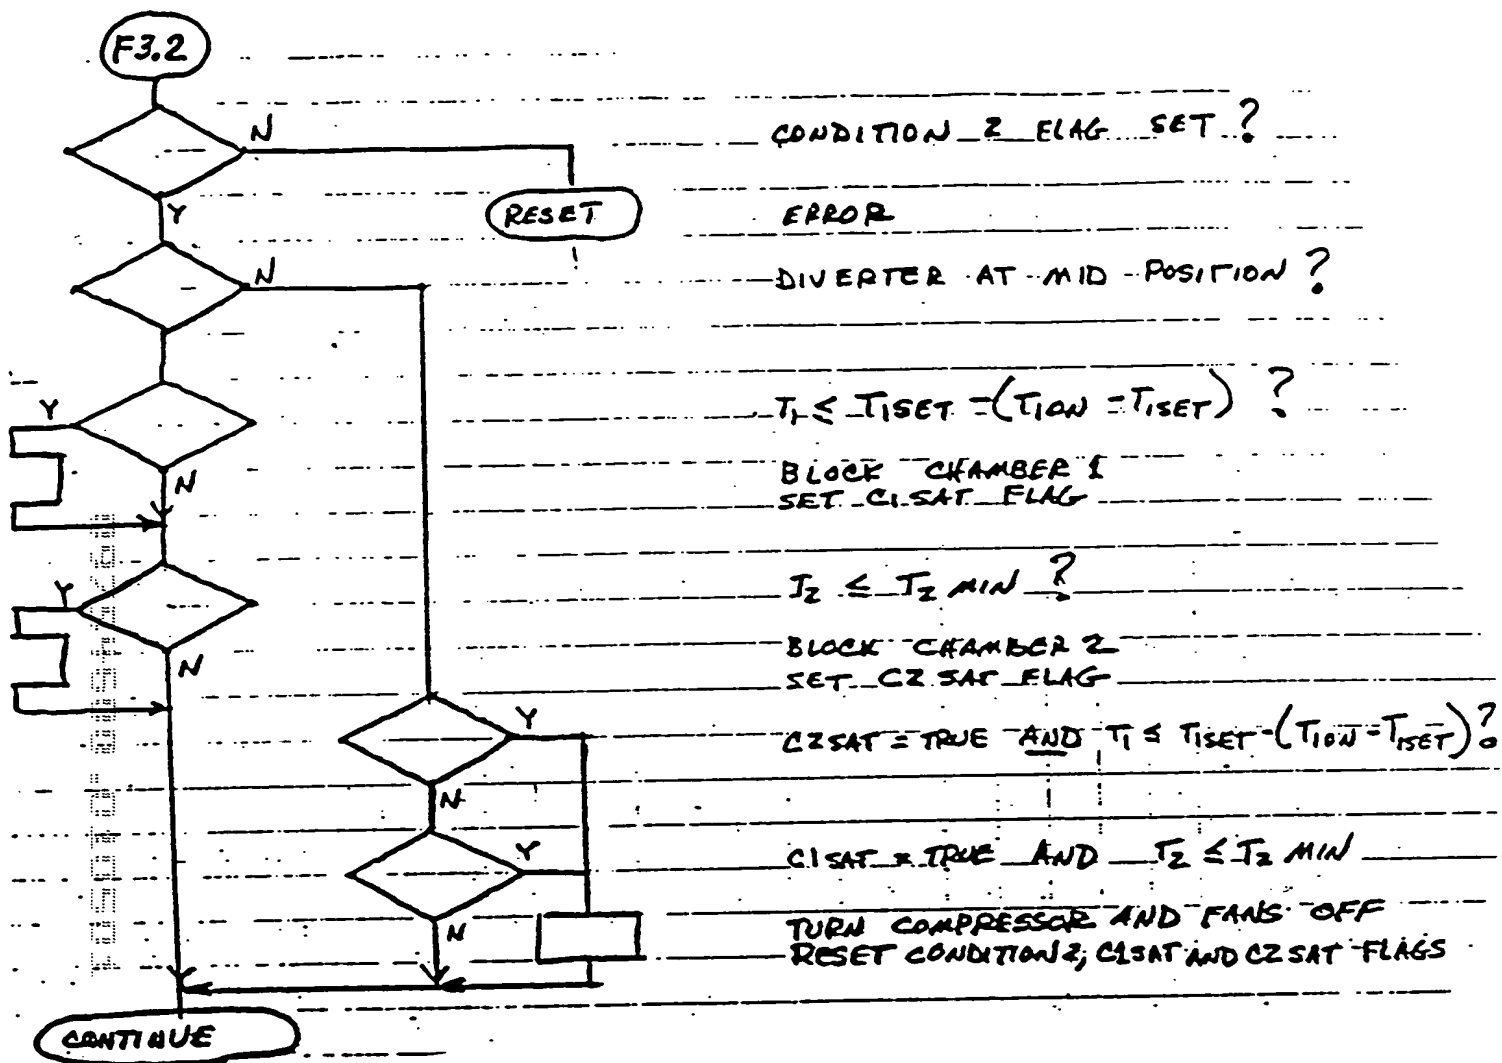 F3.2
N
CONDITION 2 FLAG SET ?
Y
RESET
ERROR
N
DIVERTER AT MID POSITION ?
Y
T1 ≤ T1SET -(T1ON - T1SET) ?
N
BLOCK CHAMBER 1
SET C1SAT FLAG
Y
T2 ≤ T2 MIN ?
N
BLOCK CHAMBER 2
SET C2SAT FLAG
Y
C2SAT = TRUE AND T1 ≤ T1SET -(T1ON - T1SET)?
N
Y
C1SAT = TRUE AND T2 ≤ T2 MIN
N
TURN COMPRESSOR AND FANS OFF
RESET CONDITION 2, C1SAT AND C2SAT FLAGS
CONTINUE